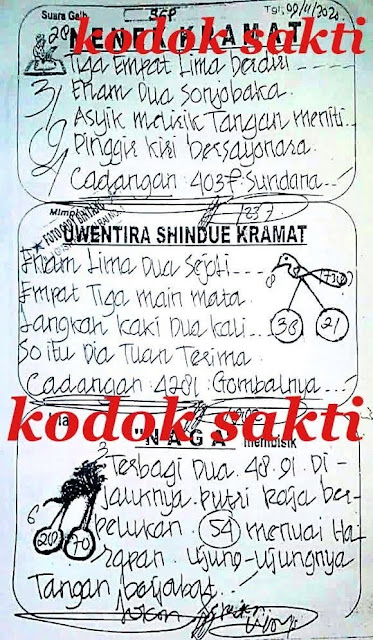 Suara Gaib
SGP
NENEK KRAMAT
kodok sakti
Tiga Empat Lima Berdiri
Enam Dua Sonjobaka.
Asyik melisik Tangan meniti
Pinggir kiri bersayonara.
Cadangan : 4037 : Sundana
1237
Mimpi
UWENTIRA SHINDUE KRAMAT
Enam Lima Dua Sejoli
Empat Tiga main mata
Langkah kaki Dua kali
36 21
So itu Dia Tuan Terima
Cadangan : 4281 : Gombalnya
kodok sakti
"NAGA" membisik
Terbagi Dua . 48.01. Di-
jauknya . Putri Raja ber-
pelukan . 54 menuai Ha-
20 70
rapan . Ujung-ujungnya
Tangan berjabat